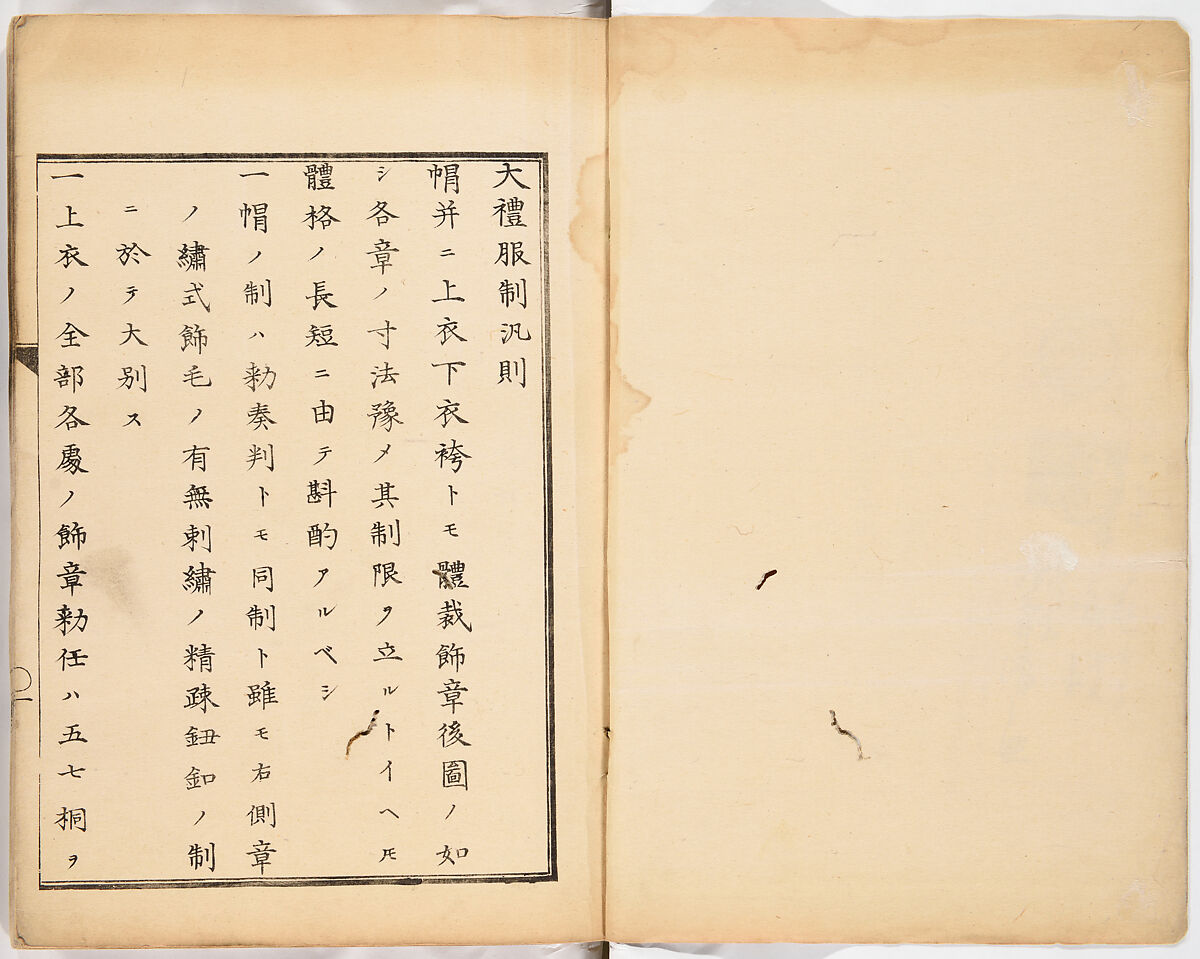 大禮服制汎則
帽并ニ上衣下衣袴トモ體裁飾章後圖ノ如
シ各章ノ寸法豫メ其制限ヲ立ルトイヘ𪜈
體格ノ長短ニ由テ斟酌アルベシ
一帽ノ制ハ勅奏判トモ同制ト雖モ右側章
ノ繡式飾毛ノ有無刺繡ノ精疎鈕釦ノ制
ニ於テ大別ス
一上衣ノ全部各處ノ飾章勅任ハ五七桐ヲ